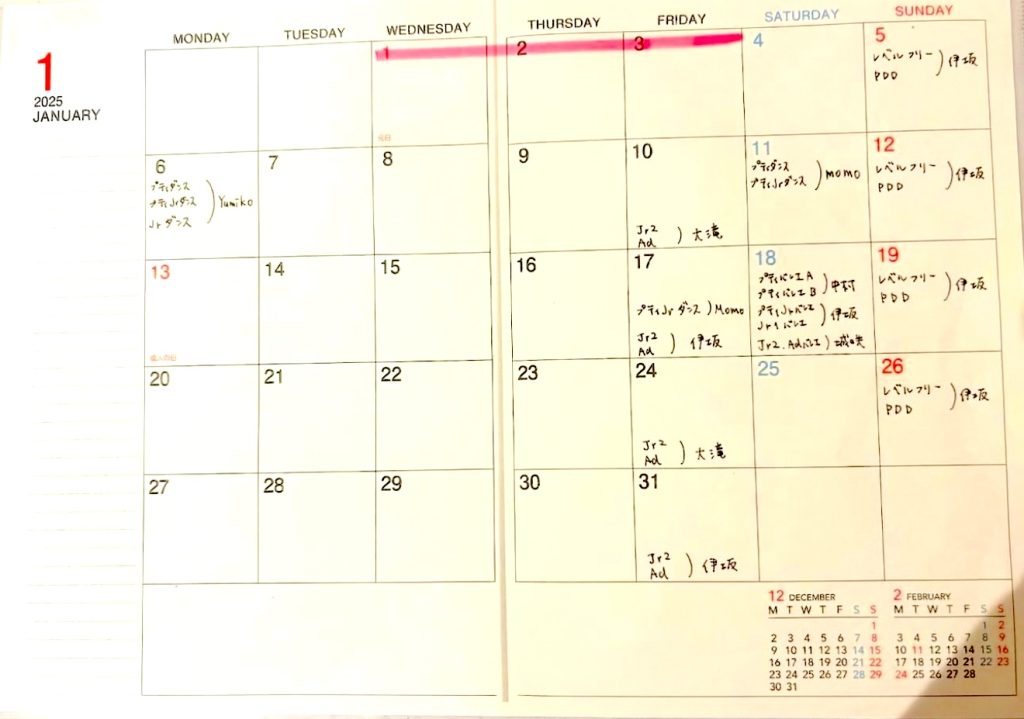 1
2025
JANUARY
MONDAY TUESDAY WEDNESDAY THURSDAY FRIDAY SATURDAY SUNDAY
1 2 3 4 5
元日
レベルフリー
PDD
伊坂
6 7 8 9 10 11 12
プティダンス
プティJrダンス
Jrダンス
Yumiko
Jr2
Ad
大滝
プティダンス
プティJrダンス
momo
レベルフリー
PDD
伊坂
13 14 15 16 17 18 19
成人の日
プティJrダンス Momo
Jr2
Ad
伊坂
プティバレエA
プティバレエB
中村
プティJrバレエ
Jr1バレエ
伊坂
Jr2.Adバレエ
レベルフリー
PDD
伊坂
20 21 22 23 24 25 26
Jr2
Ad
大滝
レベルフリー
PDD
伊坂
27 28 29 30 31
Jr2
Ad
伊坂
12 DECEMBER
M T W T F S S
1
2 3 4 5 6 7 8
9 10 11 12 13 14 15
16 17 18 19 20 21 22
23 24 25 26 27 28 29
30 31
2 FEBRUARY
M T W T F S S
1 2
3 4 5 6 7 8 9
10 11 12 13 14 15 16
17 18 19 20 21 22 23
24 25 26 27 28